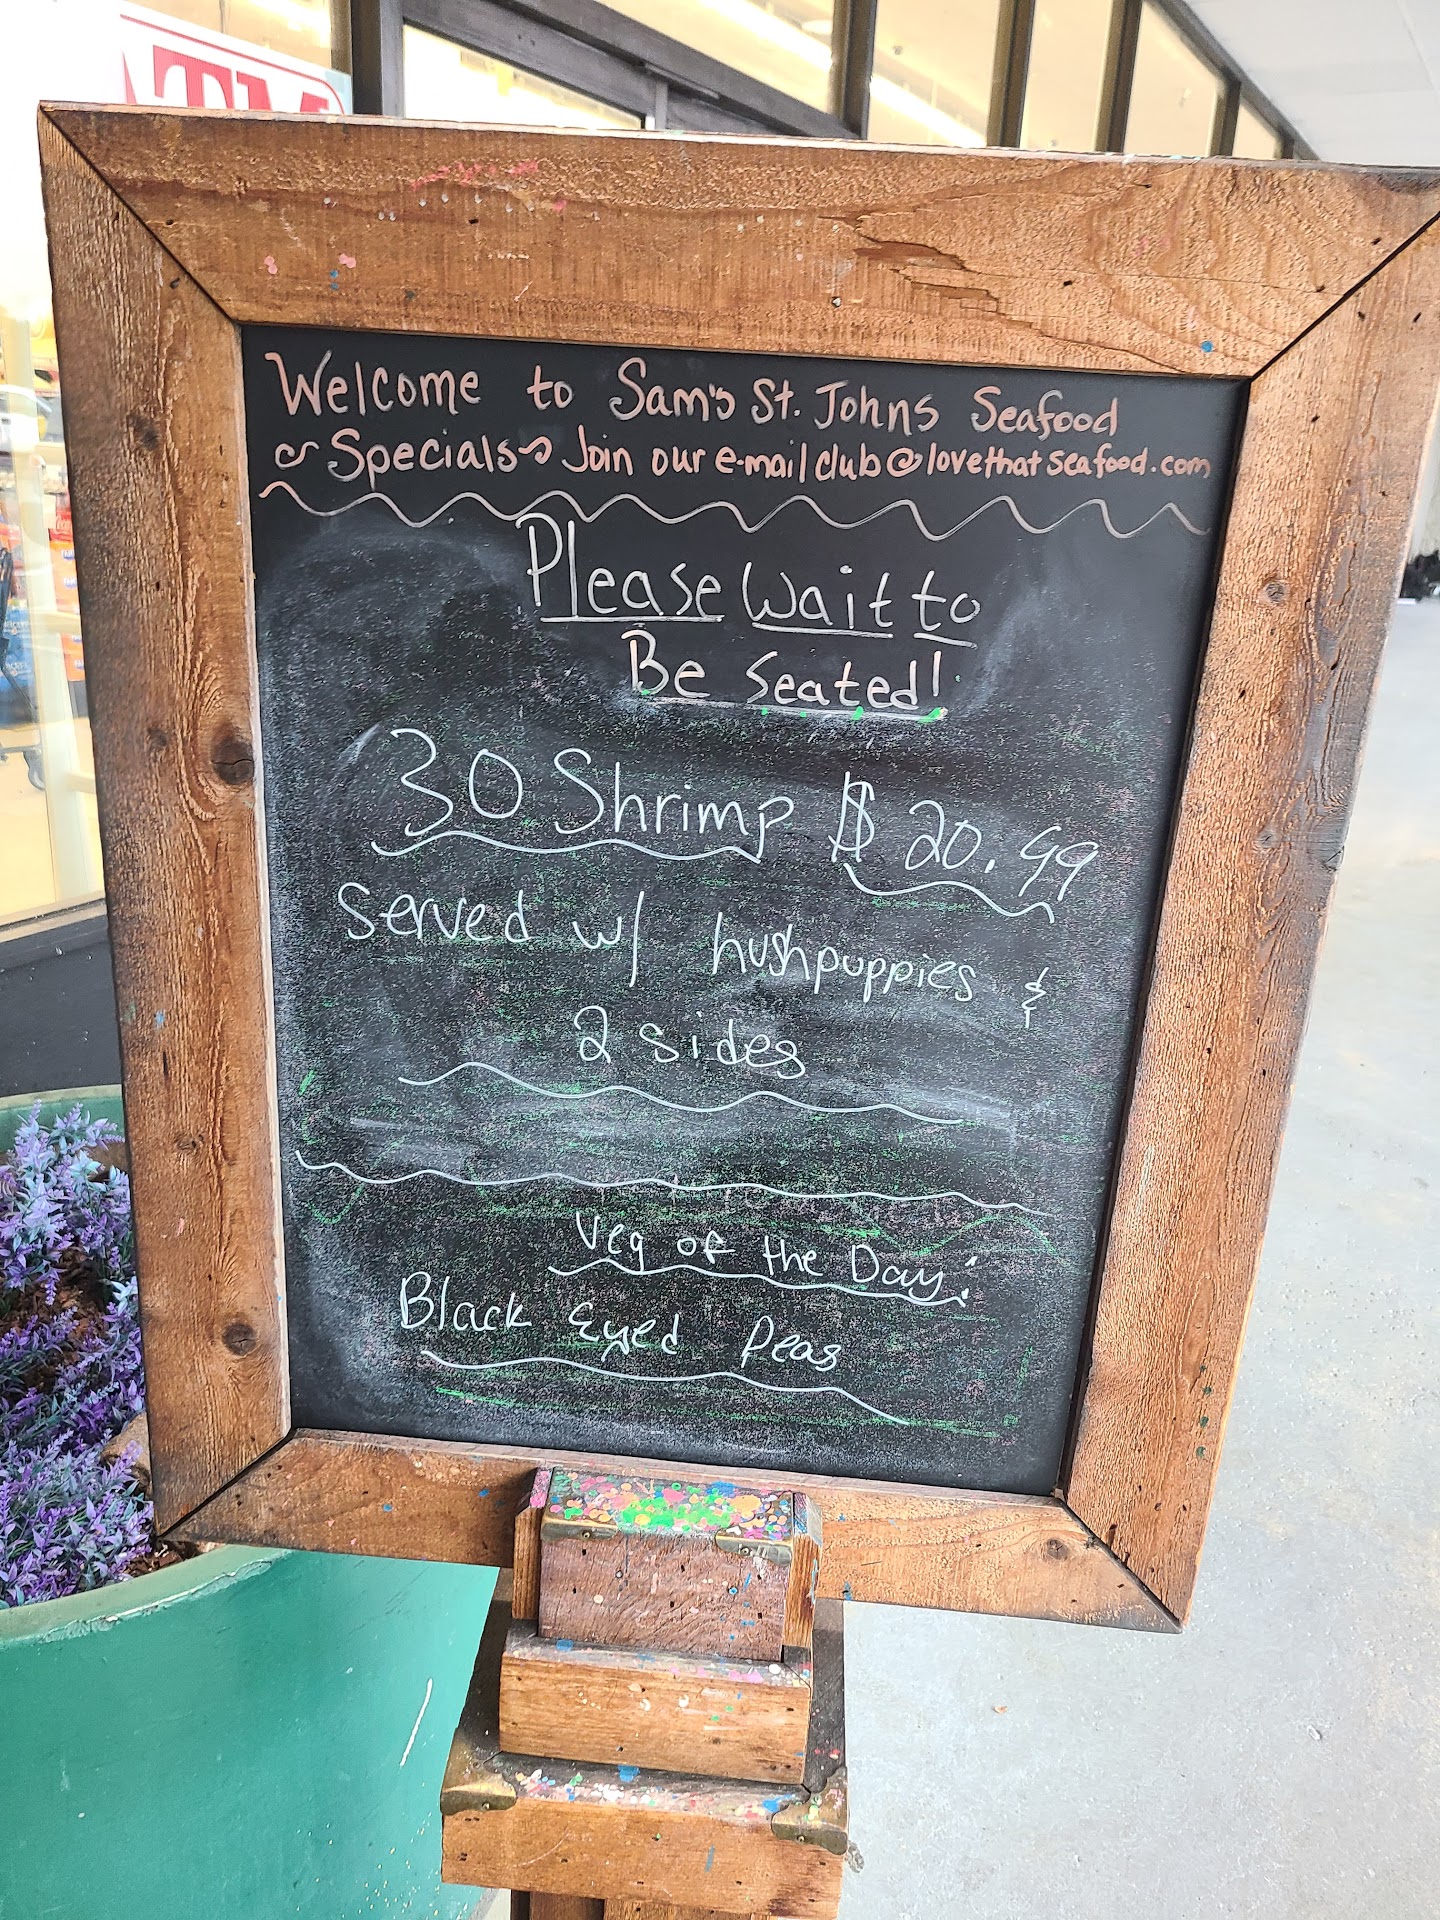 ATM
Welcome to Sam's St. Johns Seafood
Specials Join our e-mail club@lovethatseafood.com
Please Wait to
Be Seated!
30 Shrimp $20.99
Served w/ hushpuppies &
2 sides
Veg of the Day:
Black Eyed Peas